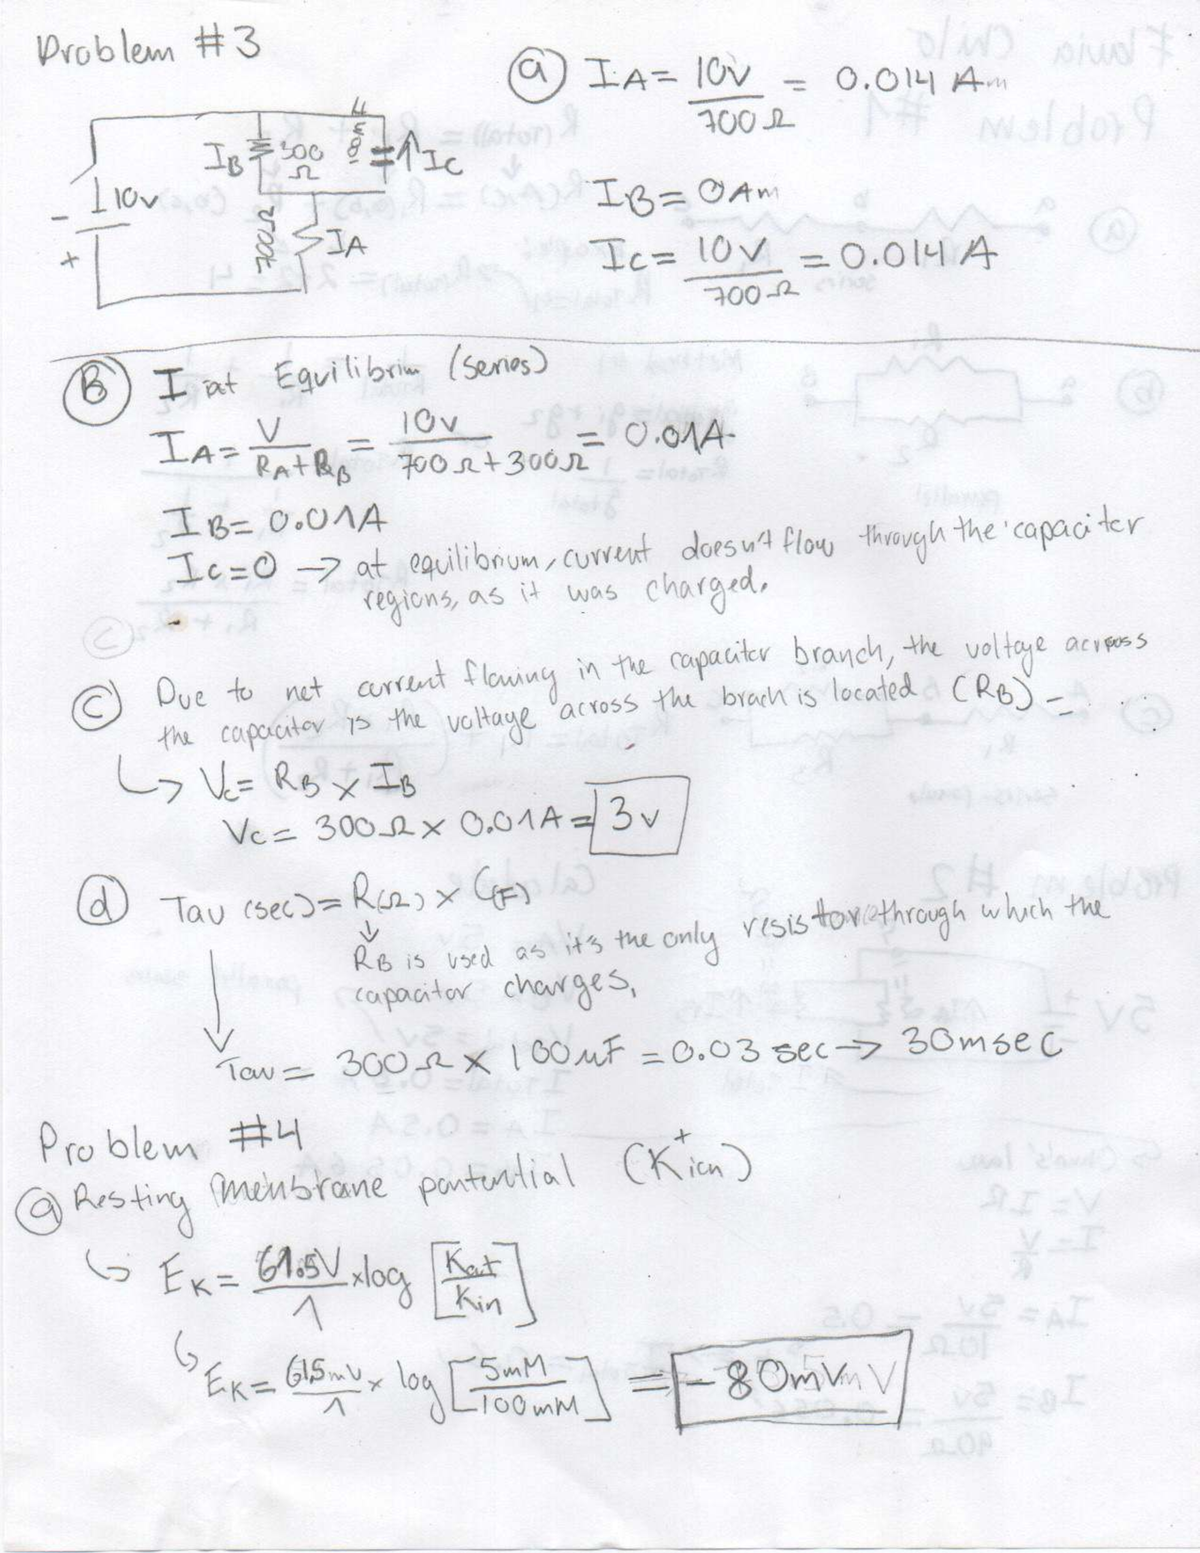 Problem #3
IB 300 Ω 100µF IC
10v
-
+
700Ω IA
(a) IA = 10v / 700Ω = 0.014 Am
IB = 0Am
IC = 10V / 700Ω = 0.014A
(B) I at Equilibrim (series)
IA = V / RA + RB = 10v / 700Ω + 300Ω = 0.01A
IB = 0.01A
IC = 0 → at equilibrium, current doesn't flow through the capacitor
regions, as it was charged.
(c) Due to net current flowing in the capacitor branch, the voltage across
the capacitor is the voltage across the brach is located (RB) =
↳ Vc = RB × IB
Vc = 300Ω × 0.01A = 3v
(d) Tau (sec) = R(Ω) × C(F)
↓
RB is used as it's the only resistor through which the
capacitor charges,
Tau = 300Ω × 100µF = 0.03 sec → 30msec
Problem #4
(a) Resting menbrane pontential (K+ion)
↳ EK = 61.5V / 1 × log [Kout / Kin]
↳ EK = 61.5mV / 1 × log [5mM / 100mM] = -80mV